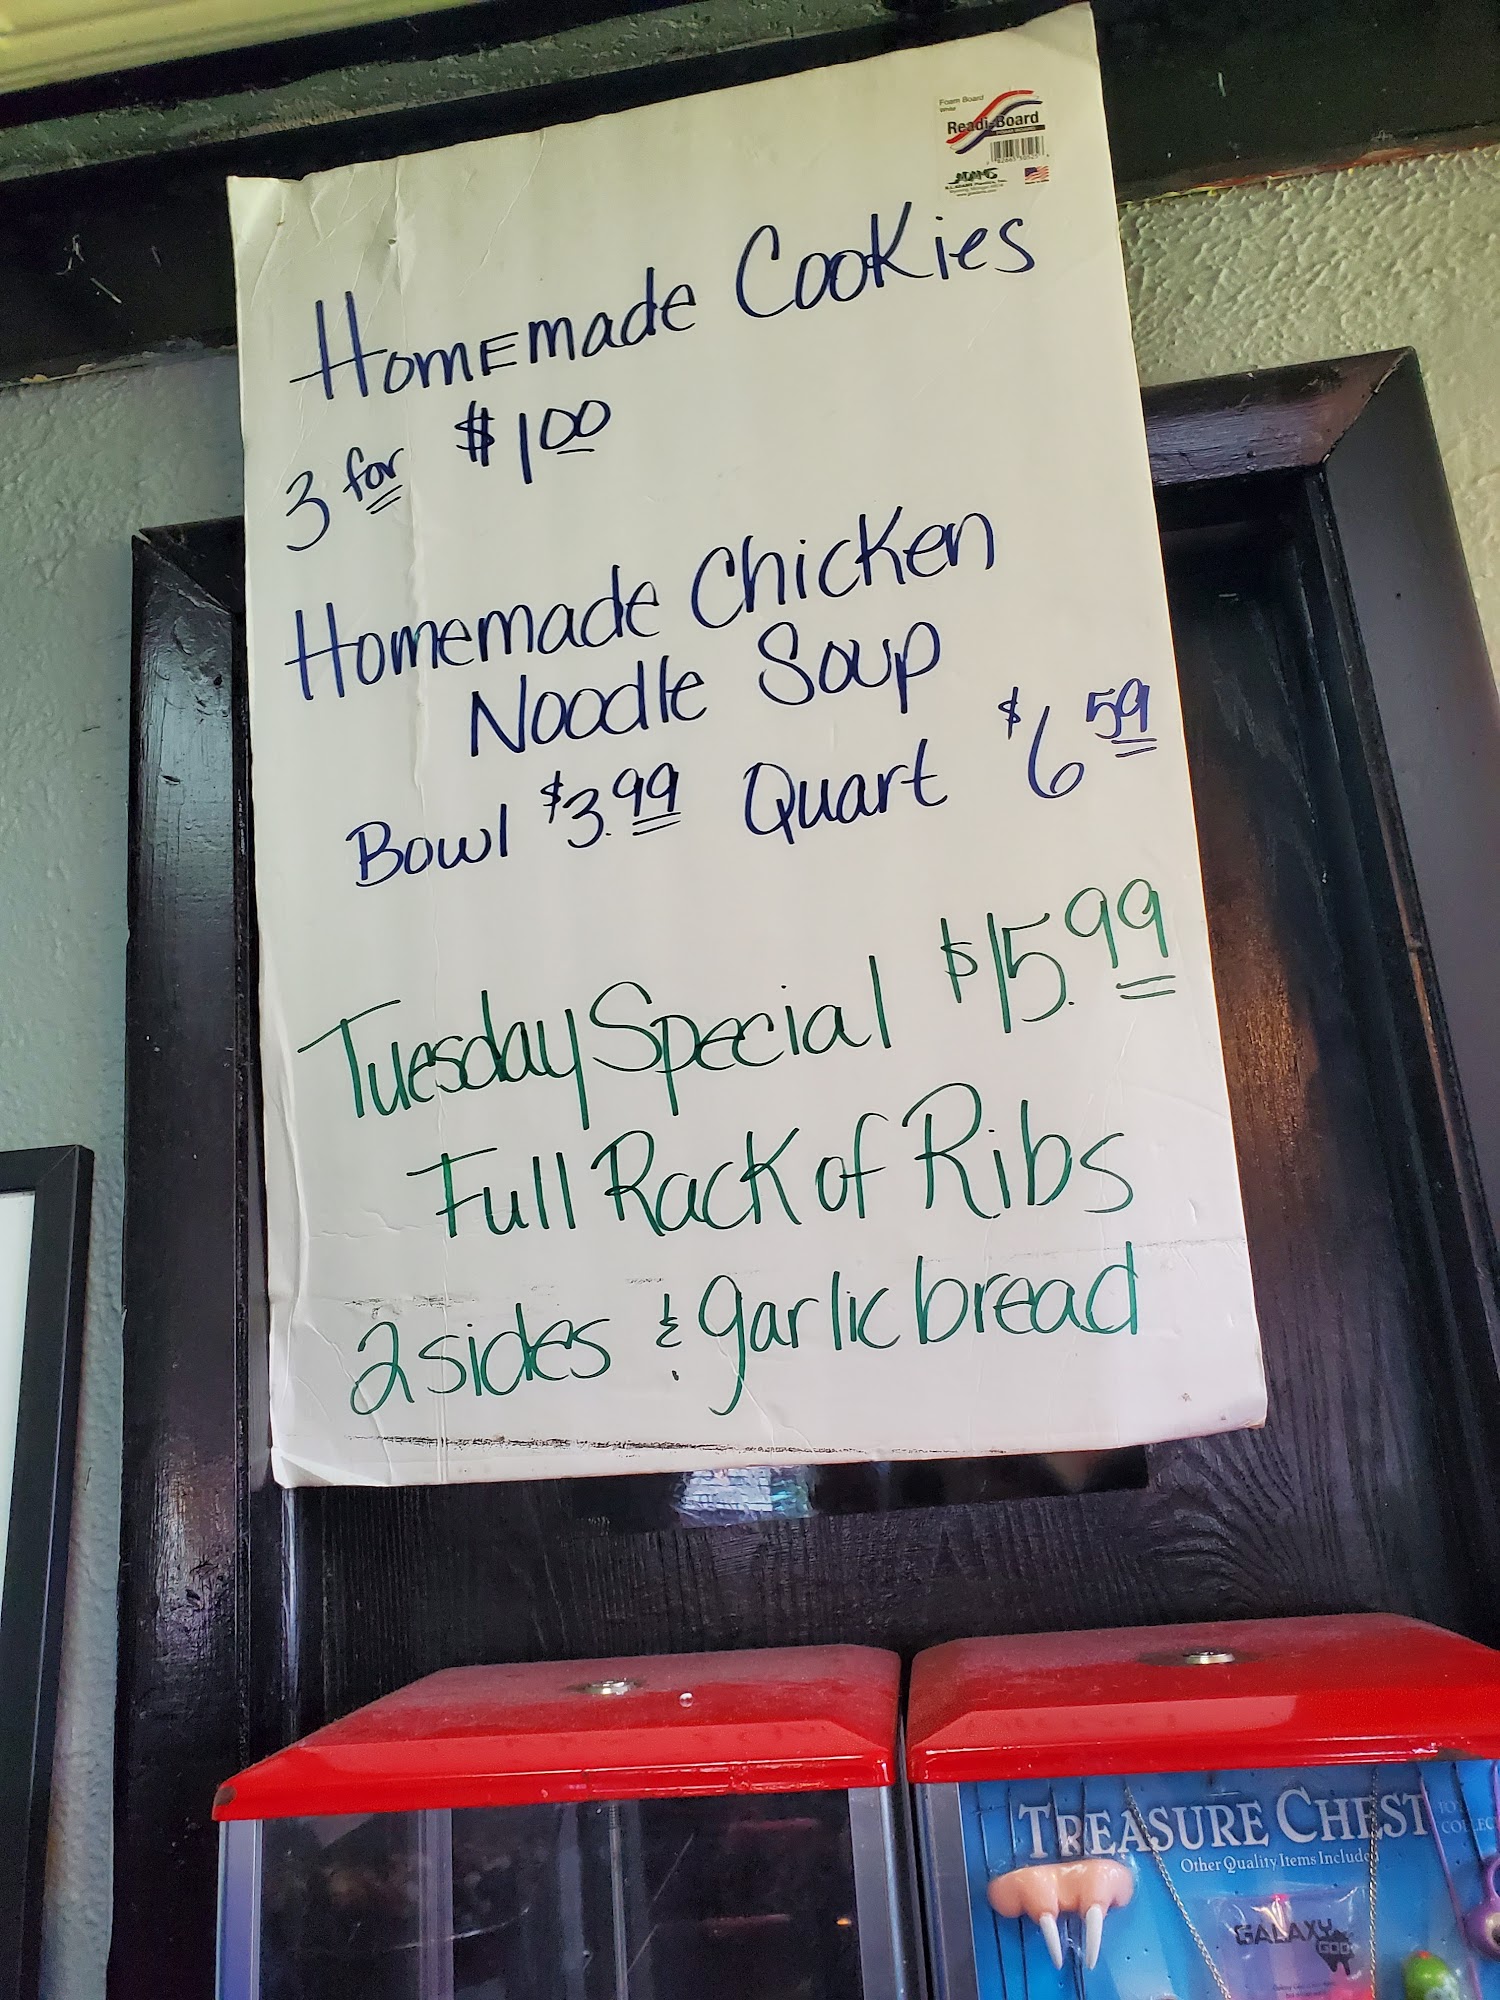 Foam Board
White
Readi-Board
ADAMS
Homemade Cookies
3 for $1.00
Homemade Chicken
Noodle Soup
Bowl $3.99 Quart $6.59
Tuesday Special $15.99
Full Rack of Ribs
2 sides & garlic bread
TREASURE CHEST
Other Quality Items Include
GALAXY
GOO